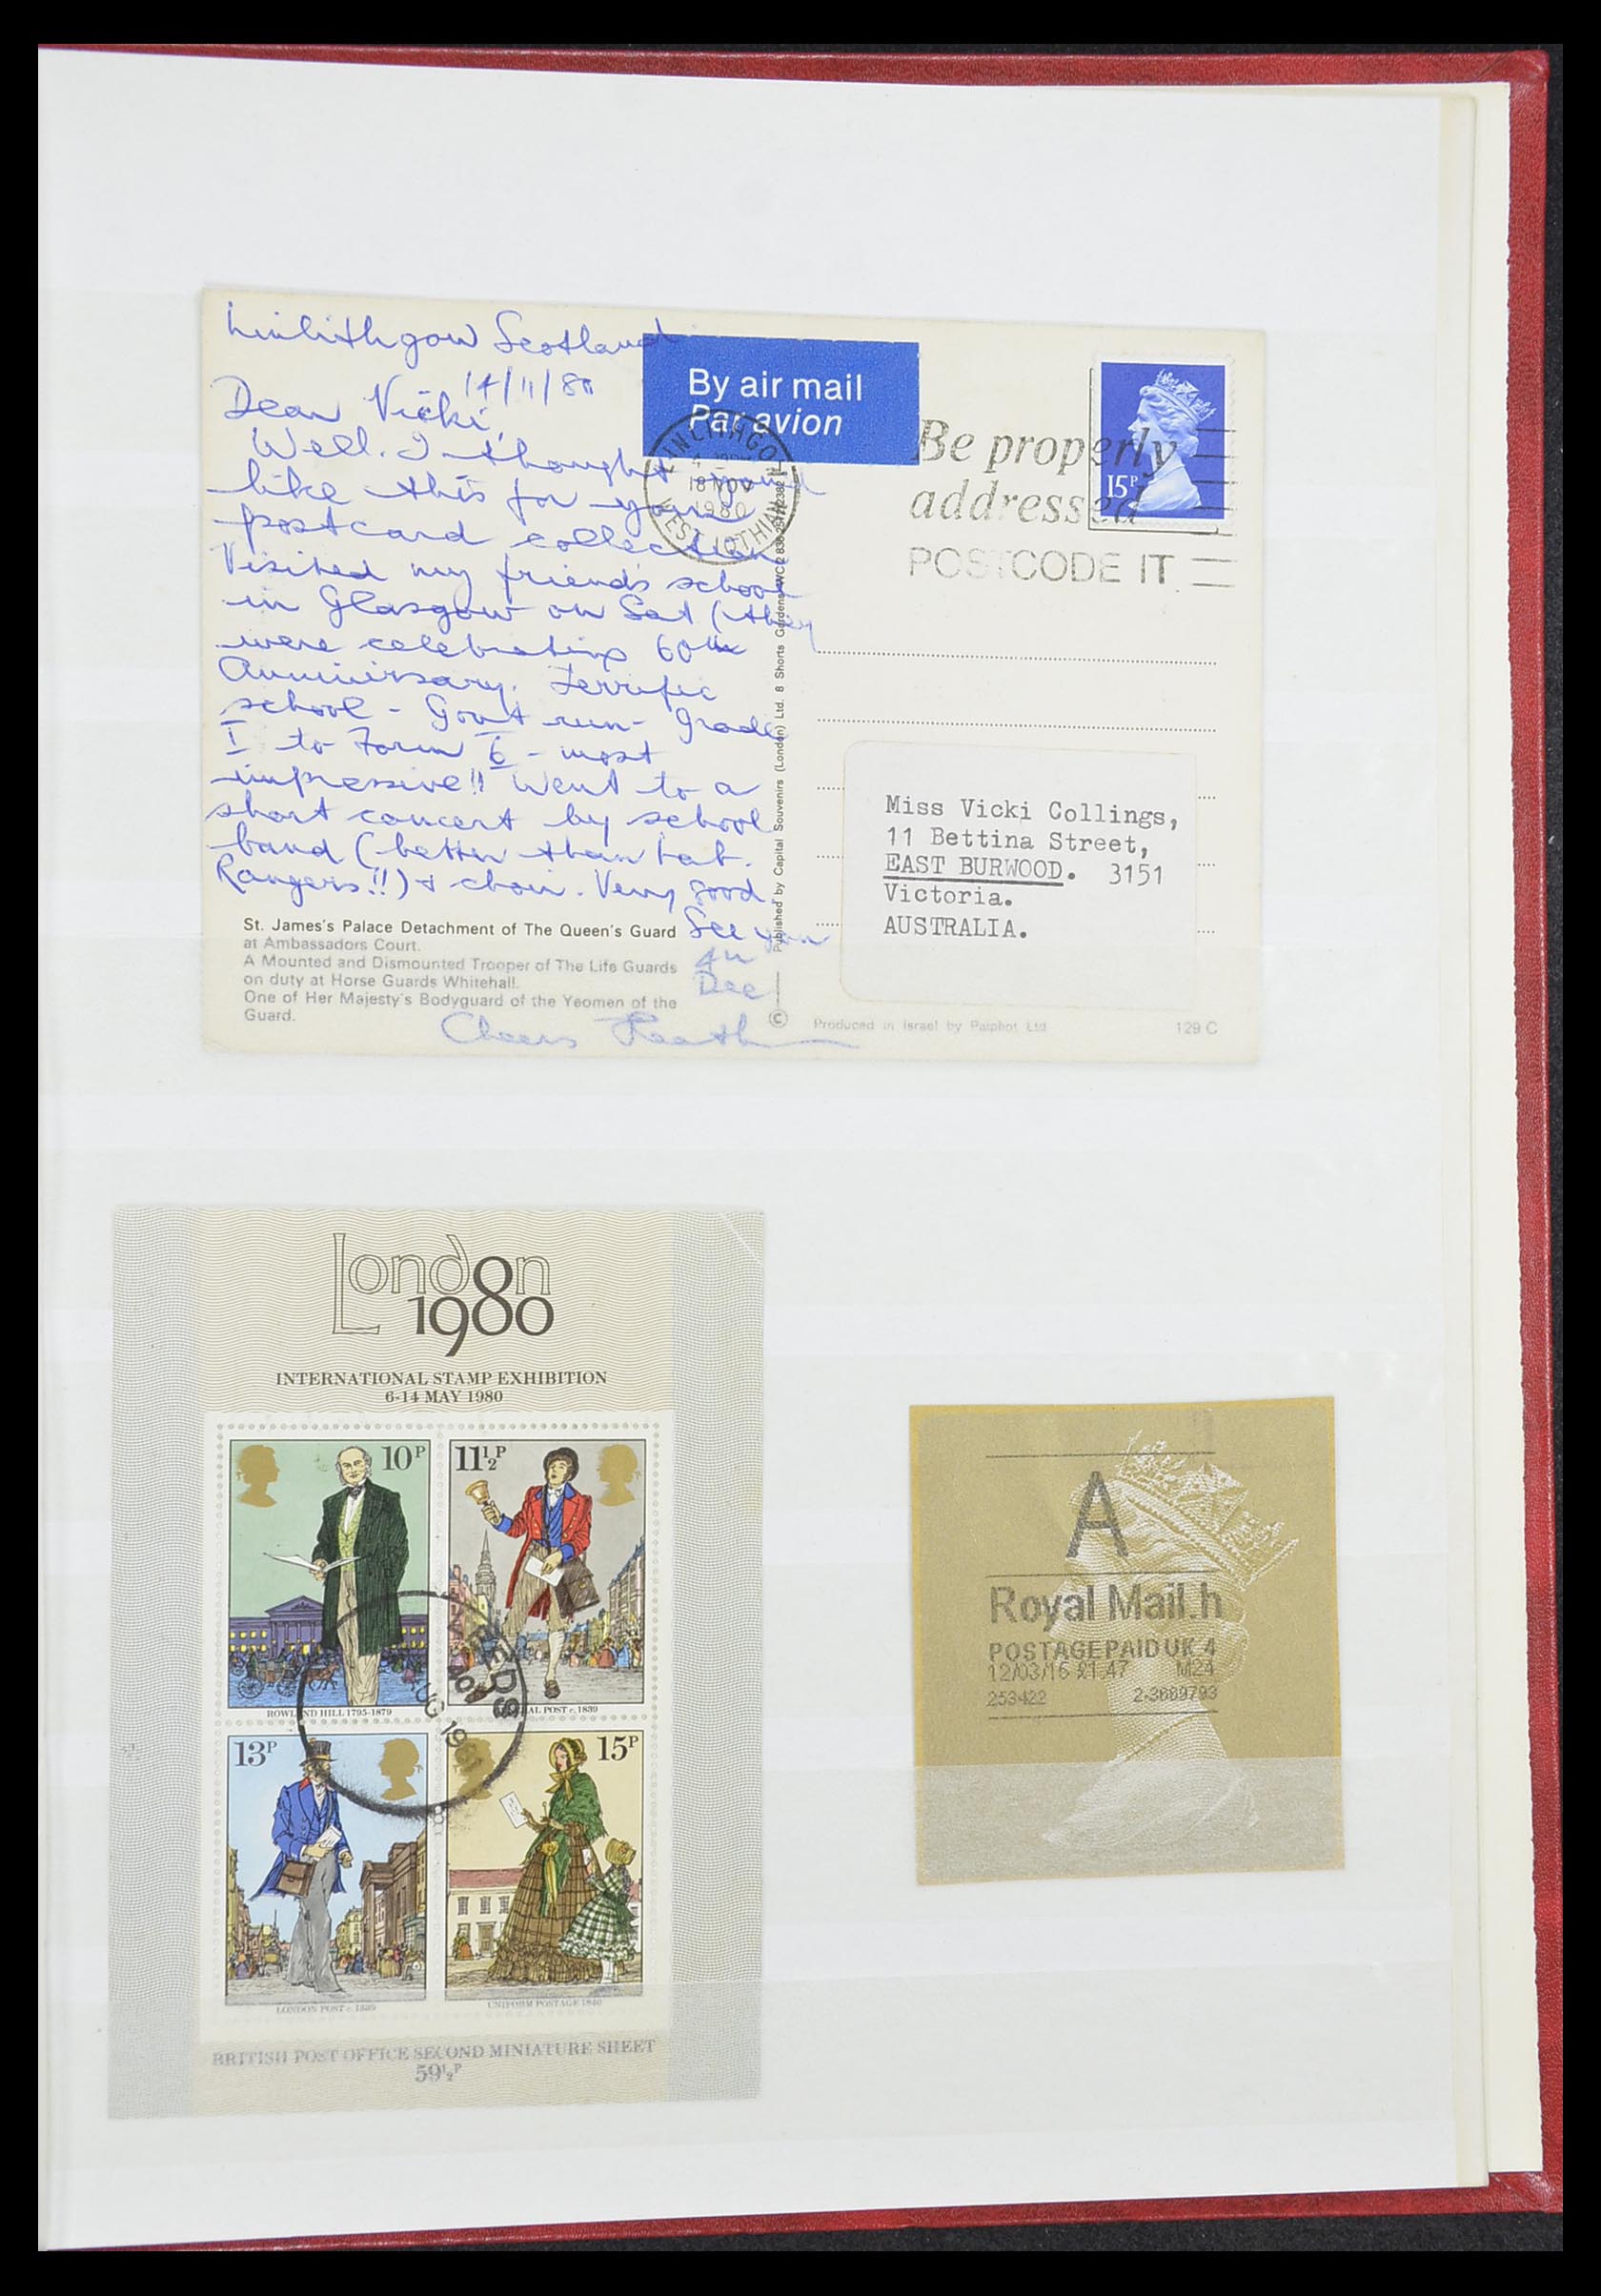 Linlithgow Scotland
14/11/80
Dear Vicki,
Well. I thought you'd
like this for your
postcard collection
Visited my friends school
in Glasgow on Sat (they
were celebrating 60th
Anniversary. Terrific
school - Govt run - Grade
I to Form 6 - most
impressive!! Went to a
short concert by school
band (better than Tat.
Rangers!!) & choir. Very good.
See you
in
Dec
Cheers Heath
By air mail
Par avion
LINLITHGOW
18 NOV
1980
WEST LOTHIAN
Be properly
addressed
POSTCODE IT
15P
Published by Capital Souvenirs (London) Ltd. 8 Shorts Gardens WC2
©
Miss Vicki Collings,
11 Bettina Street,
EAST BURWOOD. 3151
Victoria.
AUSTRALIA.
St. James's Palace Detachment of The Queen's Guard
at Ambassadors Court.
A Mounted and Dismounted Trooper of The Life Guards
on duty at Horse Guards Whitehall.
One of Her Majesty's Bodyguard of the Yeomen of the
Guard.
Produced in Israel by Palphot Ltd
129 C
London
1980
INTERNATIONAL STAMP EXHIBITION
6-14 MAY 1980
10P
11½P
ROWLAND HILL 1795-1879
POST c.1839
LEEDS
13P
15P
LONDON POST c.1839
UNIFORM POSTAGE 1840
BRITISH POST OFFICE SECOND MINIATURE SHEET
59½P
A
Royal Mail.h
POSTAGE PAID UK 4
12/03/16 £1.47 M24
253422 2-3689793